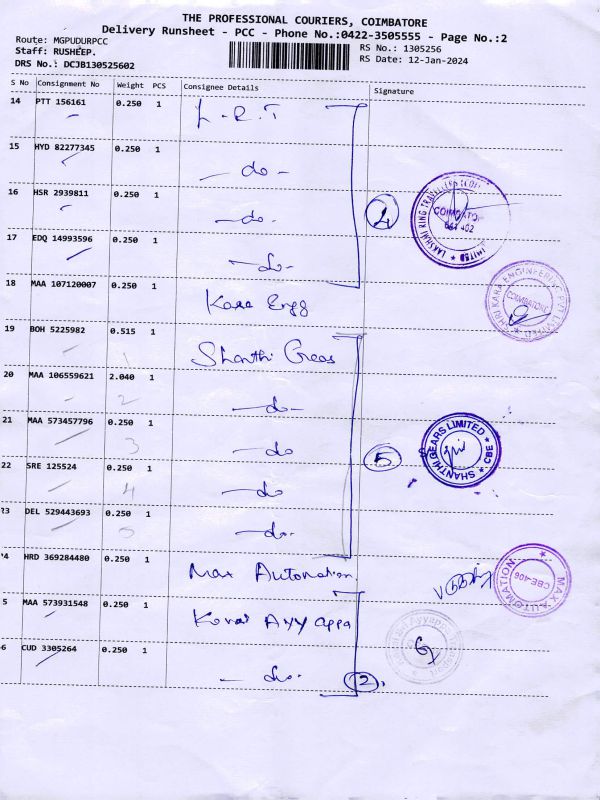 THE PROFESSIONAL COURIERS, COIMBATORE
Delivery Runsheet - PCC - Phone No.:0422-3505555 - Page No.:2
Route: MGPUDURPCC
Staff: RUSHEEP.
DRS No.: DCJB130525602
RS No.: 1305256
RS Date: 12-Jan-2024
S No Consignment No Weight PCS Consignee Details Signature
14 PTT 156161 0.250 1 L.R.T
15 HYD 82277345 0.250 1 - do -
16 HSR 2939811 0.250 1 - do -
17 EDQ 14993596 0.250 1 - do -
4
COIMBATORE
641 402
LIMITED
18 MAA 107120007 0.250 1 Kara Engg
SHRI KARA ENGINEERING PVT LIMITED
COIMBATORE
19 BOH 5225982 0.515 1 Shanthi Gears
1
20 MAA 106559621 2.040 1 - do -
2
21 MAA 573457796 0.250 1 - do
3
22 SRE 125524 0.250 1 - do
4
23 DEL 529443693 0.250 1 - do -
5
5
SHANTHI GEARS LIMITED
CBE
'4 HRD 369284480 0.250 1 Max Automation
MAX AUTOMATION
CBE-406
5 MAA 573931548 0.250 1 Kovai Ayyappa
6 CUD 3305264 0.250 1 - do -
2